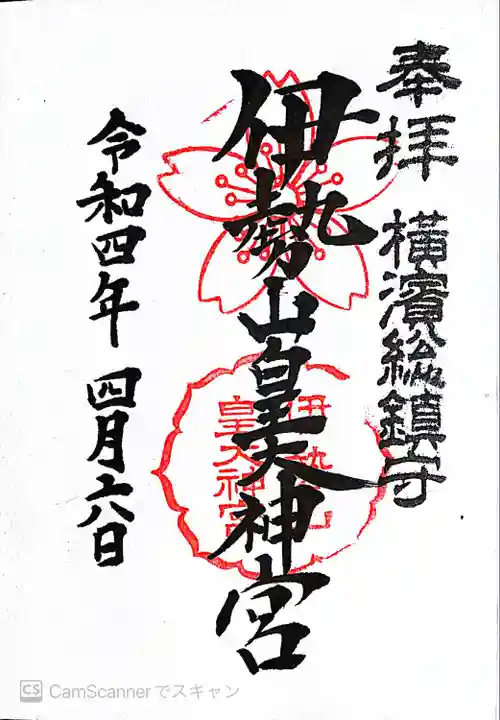 奉拝 横濱総鎮守
伊勢山皇大神宮
伊勢山
皇大神宮
令和四年 四月六日
CS CamScannerでスキャン